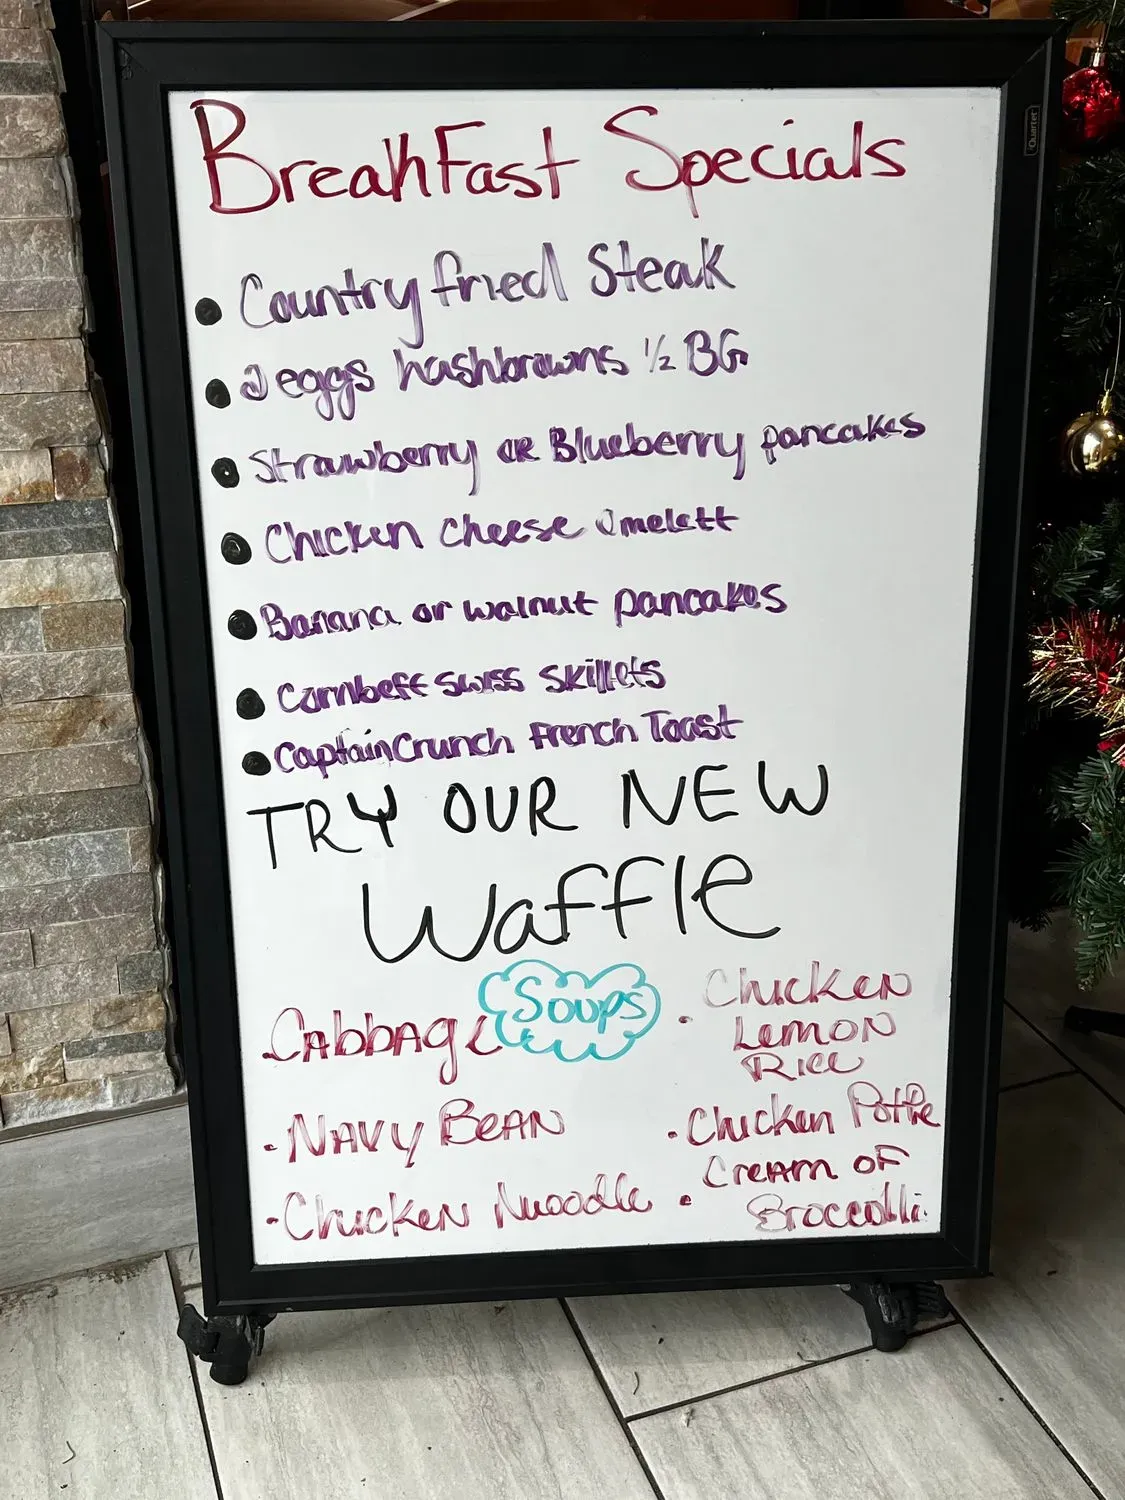 BreakFast Specials
• Country fried Steak
• 2 eggs hashbrowns 1/2 BG.
• Strawberry OR Blueberry pancakes
• Chicken Cheese Omelett
• Banana or walnut pancakes
• Cornbeff swiss skillets
• Captain Crunch French Toast
TRY OUR NEW
Waffle
Soups
• Cabbage
• NAVY BEAN
• Chicken Nuoodle
• Chicken
Lemon
Rice
• Chicken PotPie
• Cream OF
Broccolli.
Quartet